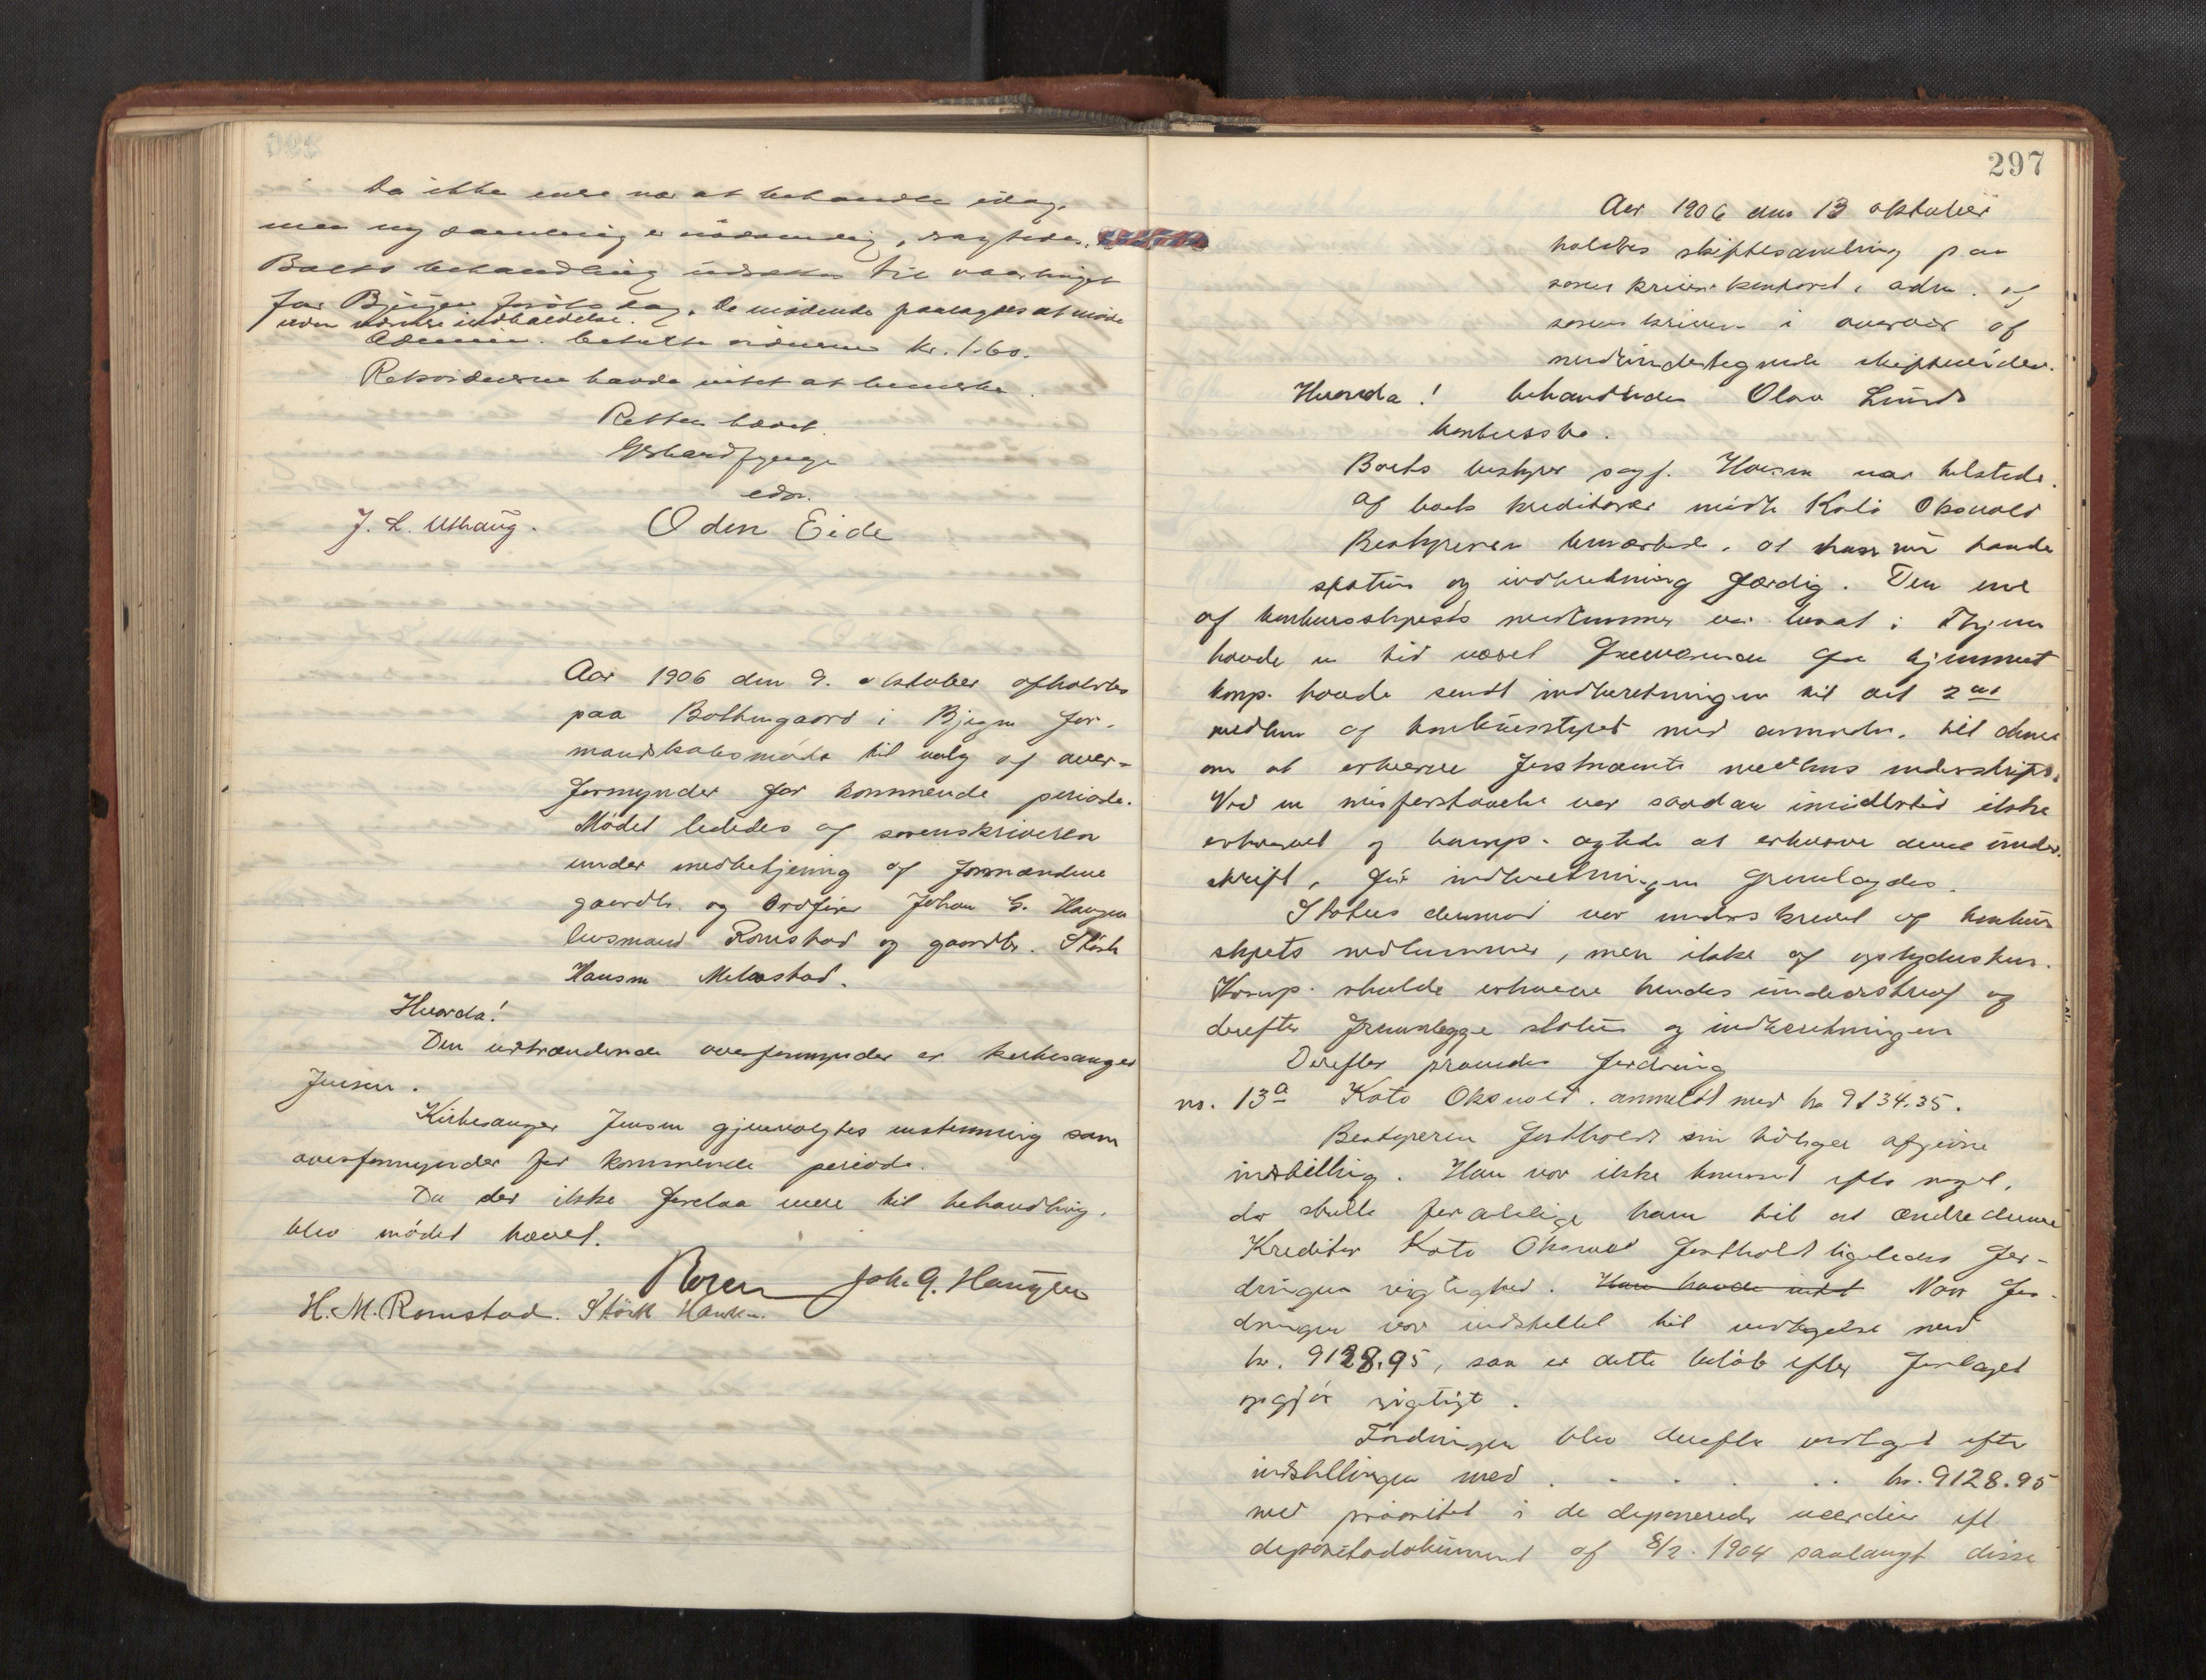 Da ikke mere var at behandle idag,
men ny samling er nødvendig,
Boets behandling udsættes til vaartinget
for Bjugn . De mødende paalagdes at møde
uden nærmere indkaldelse.
betalte vidnerne kr. 1.60.
havde intet at bemerke.
Retten hævet.
edsv.
J. L. Uthaug. Oden Eide
Aar 1906 den 9. oktober afholdtes
paa Bothengaard i Bjugn for-
mandskabsmøde til valg af over-
formynder for kommende periode.
Mødet lededes af sorenskriveren
under medbetjening af formændene
gaardbr. og Ordfører Johan G. Haugen
lensmand Romstad og gaardbr. Störk
Hansen Melastad.
Hvorda!
Den udtrædende overformynder er kirkesanger
Jensen.
Kirkesanger Jensen gjenvalgtes enstemmig som
overformynder for kommende periode.
Da der ikke forelaa mere til behandling,
blev mødet hævet.
Joh. G. Haugen
H. M. Romstad. Störk Hansen.
297
Aar 1906 den 13 oktober
holdtes skiftesamling paa
sorenskriverkontoret, adm. af
sorenskriveren i overvær af
medundertegnede skiftevidner.
Hvorda! behandledes Olav Lunds
konkursbo.
Boets bestyrer sagf. Hansen var tilstede.
Af boets kreditorer mødte Kato Oksvold
Bestyreren bemærkede, at han nu havde
status og indberetning færdig. Den ene
af konkursstyrets medlemmer, som boede i
havde en tid været fraværende fra hjemmet
komp. havde sendt indberetningen til det 2det
medlem af konkursstyret med anmodn. til denne
om at erhverve førstnævnte medlems underskrift.
Ved en misforstaaelse var saadan imidlertid ikke
erhvervet og komp. agtede at erhverve denne under-
skrift, før indberetningen fremlagdes.
Status derimod var underskrevet af konkurs
styrets medlemmer, men ikke af
Komp. skulde erhverve hendes underskrift og
derefter fremlægge status og indberetningen
Derefter prøvedes fordring
no. 13a Kato Oksvold. anmeldt med kr 9134.35.
Bestyreren fastholdt sin tidligere afgivne
indstilling. Han var ikke kommet efter noget,
der skulde foranledige ham til at ændre denne
Kreditor Kato Oksvold fastholdt ligeledes for-
dringens rigtighed. Han havde intet Naar for-
dringen var indstillet til vedtagelse med
kr. 9128.95, saa er dette beløb efter forlaget
opgjør rigtigt.
Fordringen blev derefter vedtaget efter
indstillingen med . . . . . kr. 9128.95
med prioritet i de deponerede værdier efter
depositodokument af 8/2. 1904 saalangt disse